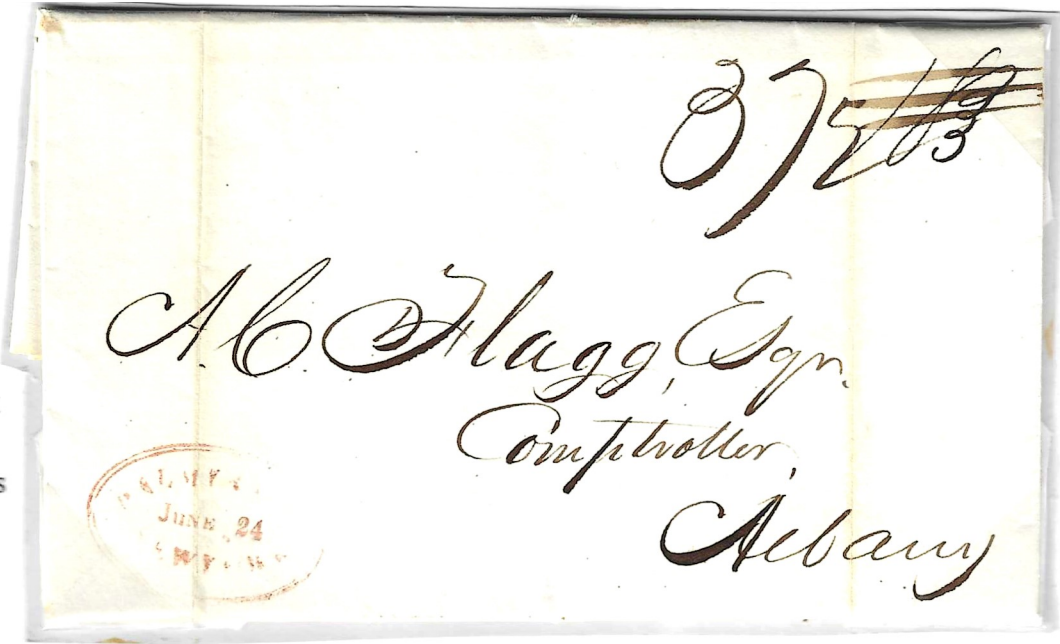 37½
A. C. Flagg, Esqr.
Comptroller,
Albany
PALMYRA
JUNE 24